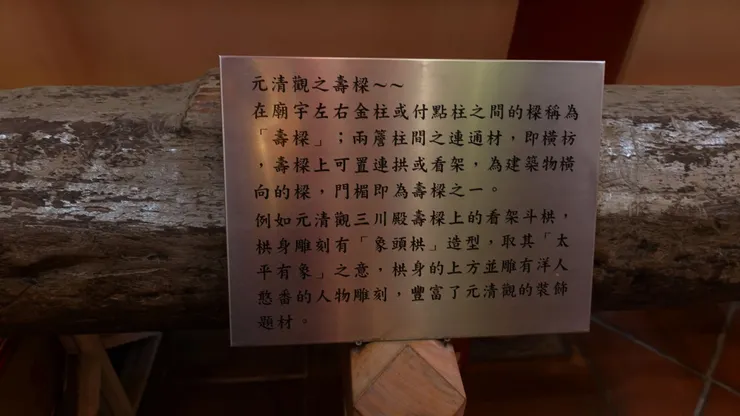 元清觀之壽樑～～
在廟宇左右金柱或付點柱之間的樑稱為
「壽樑」；兩簷柱間之連通材，即橫枋
，壽樑上可置連拱或看架，為建築物橫
向的樑，門楣即為壽樑之一。
例如元清觀三川殿壽樑上的看架斗栱，
栱身雕刻有「象頭栱」造型，取其「太
平有象」之意，栱身的上方並雕有洋人
憨番的人物雕刻，豐富了元清觀的裝飾
題材。